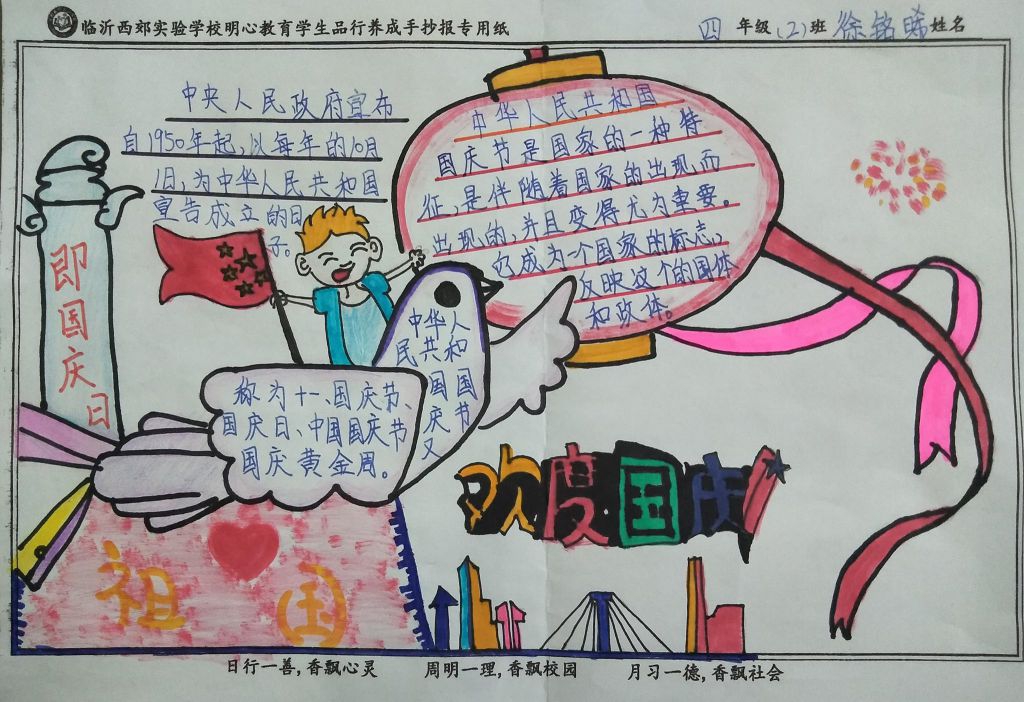 临沂西郊实验学校明心教育学生品行养成手抄报专用纸
四 年级(2)班 徐铭晞 姓名
中央人民政府宣布
自1950年起,以每年的10月
1日,为中华人民共和国
宣告成立的日
子。
即国庆日
中华人民共和国
国庆节是国家的一种特
征,是伴随着国家的出现而
出现的,并且变得尤为重要。
它成为一个国家的标志,
反映这个的国体
和政体。
中华人
民共和
国国
庆节
又
称为十一、国庆节、
国庆日、中国国庆节
国庆黄金周。
欢度国庆!
祖国
日行一善,香飘心灵 周明一理,香飘校园 月习一德,香飘社会